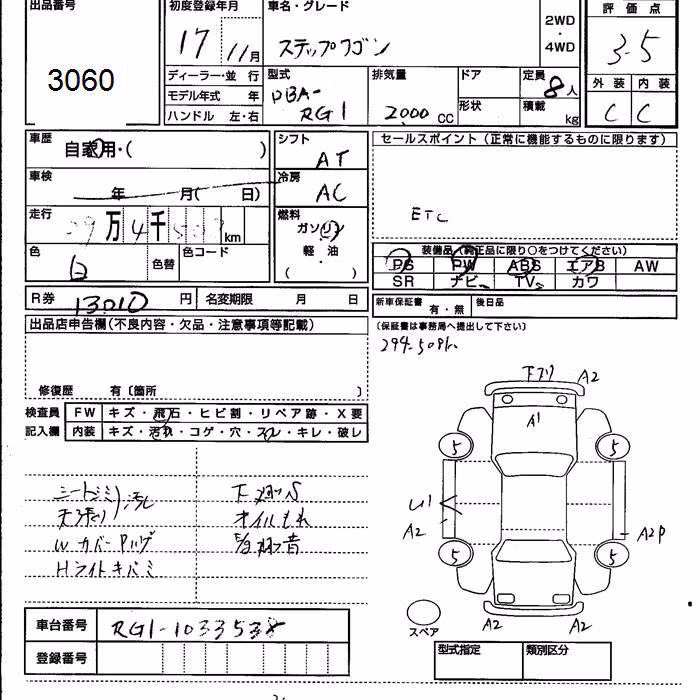 出品番号
3060
初度登録年月
17 11月
車名・グレード
ステップワゴン
2WD
・
4WD
評価点
3.5
外装 内装
C C
ディーラー・並行
モデル年式 年
ハンドル 左・右
型式
DBA-
RG1
排気量
2000 CC
ドア
形状
定員
8人
積載
kg
車歴
自家用・( )
シフト
AT
車検
年 月( 日)
冷房
AC
走行
29万4千507km
燃料
ガソリン
軽・油
( )
色
白
色替
色コード
セールスポイント(正常に機能するものに限ります)
ETC
装備品(純正品に限り○をつけてください)
PS PW ABS エアB AW
SR ナビ TV カワ
R券 13010 円
名変期限 月 日
新車保証書 有・無
後日品
(保証書は事務局へ提出して下さい)
294.50
出品店申告欄(不良内容・欠品・注意事項等記載)
修復歴 有〔箇所 〕
検査員
記入欄
FW キズ・飛石・ヒビ割・リペア跡・X要
内装 キズ・汚れ・コゲ・穴・スレ・キレ・破レ
シートシミ
天張り 汚れ
W カバー
Hライトキバミ
オイルもれ
下フリ A2
A1
5
5
5
5
A2
A2P
A2
A2
スペア
車台番号
RG1-1033538
登録番号
型式指定
類別区分